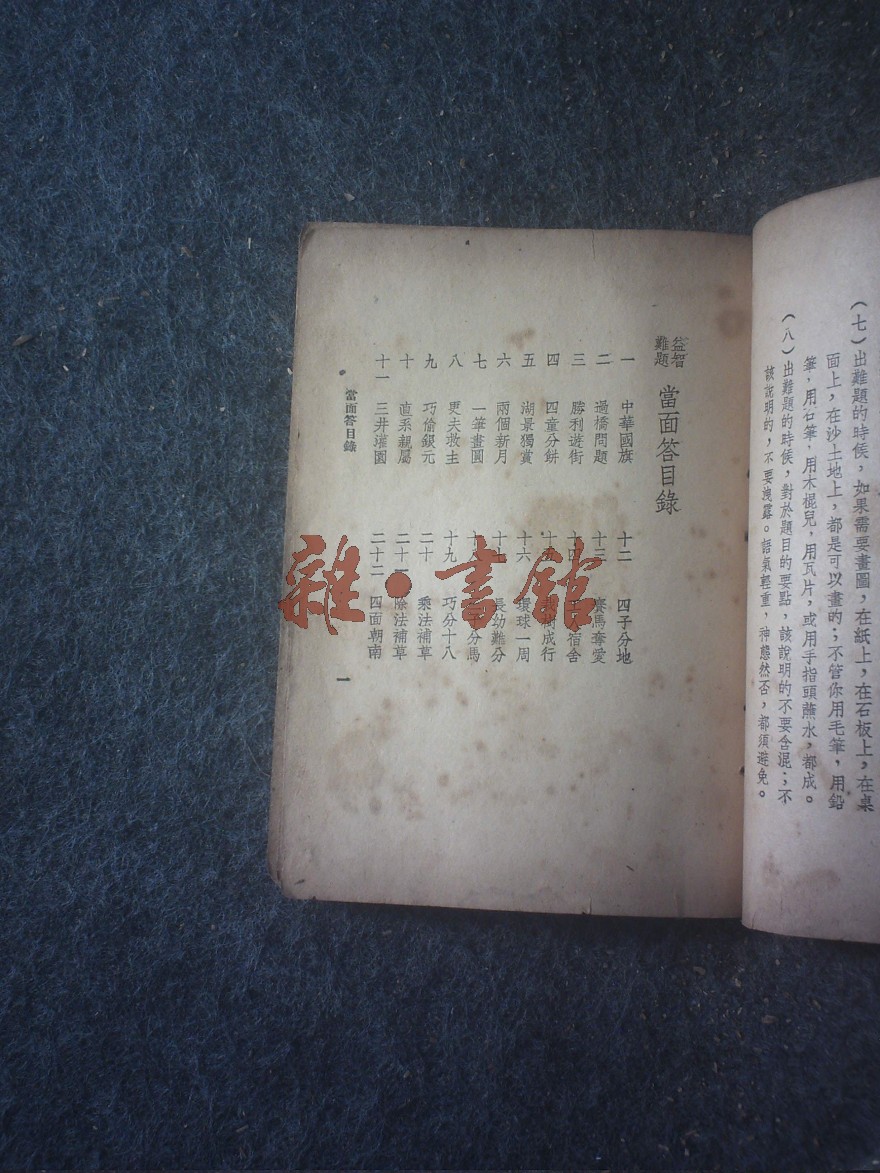 （七）出難題的時候，如果需要畫圖，在紙上，在石板上，在桌
面上，在沙土地上，都是可以畫的；不管你用毛筆，用鉛
筆，用石筆，用木棍兒，用瓦片，或用手指頭蘸水，都成。
（八）出難題的時候，對於題目的要點，該說明的不要含混；不
該說明的，不要洩露。語氣輕重，神態然否，都須避免。
益智
難題
當面答目錄
一 中華國旗
二 過橋問題
三 勝利遊街
四 四童分餅
五 湖景獨賞
六 兩個新月
七 一筆畫圓
八 更夫救主
九 巧偷銀元
十 直系親屬
十一 三井灌園
十二 四子分地
十三 賽馬奪愛
十四 宿舍
十五 成行
十六 環球一周
十七 長幼難分
十八 分馬
十九 巧分十八
二十 乘法補草
二十一 除法補草
二十二 四面朝南
當面答目錄
一
雜·書館